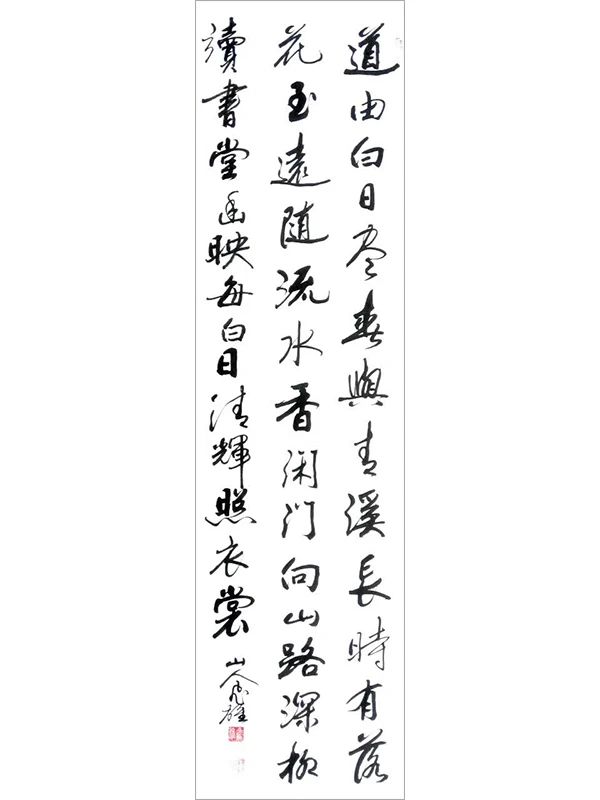 道由白日尽春與青溪長時有落
花至遠随流水香闲门向山路深柳
讀書堂幽映每白日清輝照衣裳
山人